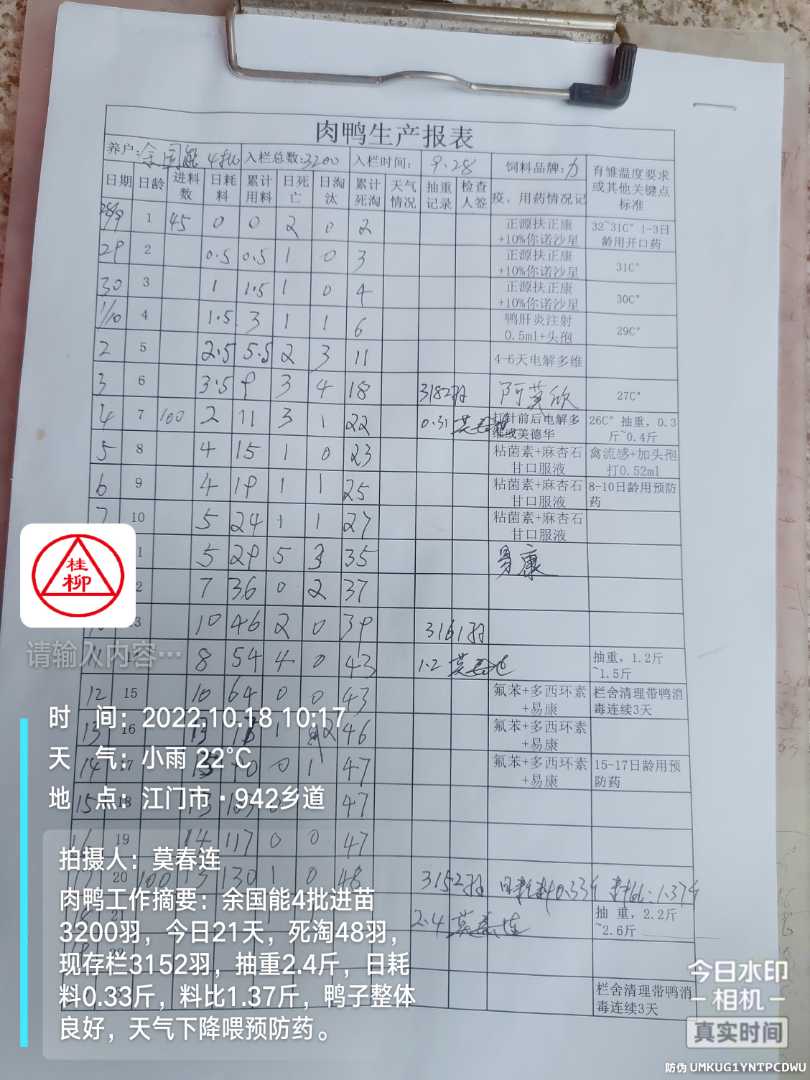 肉鸭生产报表
养户: 余国能 4批 入栏总数:3200 入栏时间: 9.28 饲料品牌: 力 育雏温度要求或其他关键点标准
日期 日龄 进料数 日耗料 累计用料 日死亡 日淘汰 累计死淘 天气情况 抽重记录 检查人签 疫、用药情况记
28/9 1 45 0 0 2 0 2 正源扶正康+10%你诺沙星 32~31C° 1-3日龄用开口药
29 2 0.5 0.5 1 0 3 正源扶正康+10%你诺沙星 31C°
30 3 1 1.5 1 0 4 正源扶正康+10%你诺沙星 30C°
1/10 4 1.5 3 1 1 6 鸭肝炎注射0.5ml+头孢 29C°
2 5 2.5 5.5 2 3 11 4-6天电解多维
3 6 3.5 9 3 4 18 3182羽 阿莫欣 27C°
4 7 100 2 11 3 1 22 0.31 莫春连 打针前后电解多维或芙德华 26C° 抽重，0.3斤~0.4斤
5 8 4 15 1 0 23 粘菌素+麻杏石甘口服液 禽流感+加头孢打0.52ml
6 9 4 19 1 1 25 粘菌素+麻杏石甘口服液 8-10日龄用预防药
7 10 5 24 1 1 27 粘菌素+麻杏石甘口服液
1 5 29 5 3 35 易康
2 7 36 0 2 37
13 10 46 2 0 39 3161羽
11 8 54 4 0 43 1.2 莫春连 抽重，1.2斤~1.5斤
12 15 10 64 0 0 43 氟苯+多西环素+易康 栏舍清理带鸭消毒连续3天
13 16 1 2 46 氟苯+多西环素+易康
14 17 0 1 47 氟苯+多西环素+易康 15-17日龄用预防药
15 18 47
19 14 117 0 0 47
20 100 13 130 1 0 48 3152羽 日耗料0.33斤 料比:1.37斤
21 2.4 莫春连 抽重，2.2斤~2.6斤
栏舍清理带鸭消毒连续3天
桂柳
请输入内容…
时 间：2022.10.18 10:17
天 气：小雨 22℃
地 点：江门市·942乡道
拍摄人：莫春连
肉鸭工作摘要：余国能4批进苗
3200羽，今日21天，死淘48羽，
现存栏3152羽，抽重2.4斤，日耗
料0.33斤，料比1.37斤，鸭子整体
良好，天气下降喂预防药。
今日水印
相机
真实时间
防伪 UMKUG1YNTPCDWU